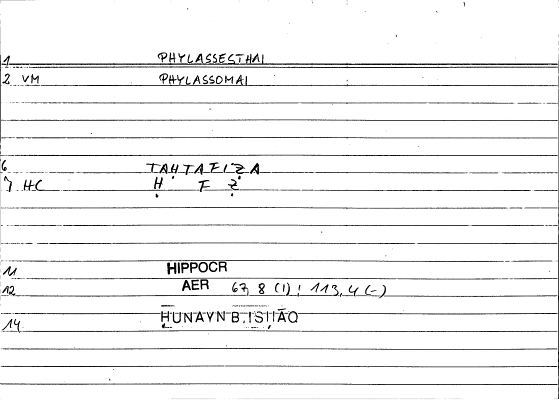 1 PHYLASSESTHAI
2 VM PHYLASSOMAI
6 TAḤTAFIẒA
7 HC Ḥ F Ẓ
11 HIPPOCR
12 AER 67, 8 (1) ; 113, 4 (-)
14 ḤUNAYN B. ISḤĀQ